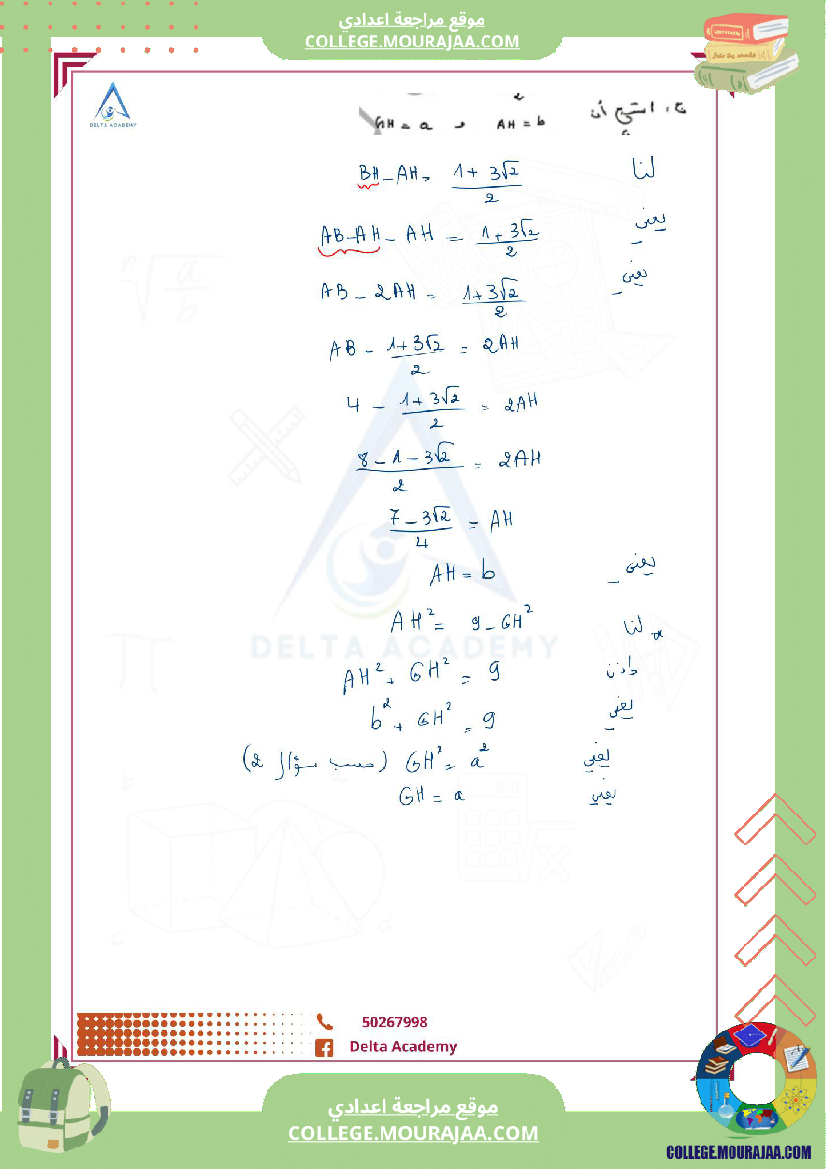 موقع مراجعة اعدادي
COLLEGE.MOURAJAA.COM
DELTA ACADEMY
ج. استنتج أن AH = b و GH = a
لنا BH - AH = (1 + 3√2)/2
يعني AB - AH - AH = (1 + 3√2)/2
يعني AB - 2AH = (1 + 3√2)/2
AB - (1 + 3√2)/2 = 2AH
4 - (1 + 3√2)/2 = 2AH
(8 - 1 - 3√2)/2 = 2AH
(7 - 3√2)/4 = AH
يعني AH = b
لنا AH² = 9 - GH²
DELTA ACADEMY
وإذن AH² + GH² = 9
يعني b² + GH² = 9
يعني GH² = a² (حسب سؤال 2)
يعني GH = a
50267998
Delta Academy
موقع مراجعة اعدادي
COLLEGE.MOURAJAA.COM
COLLEGE.MOURAJAA.COM